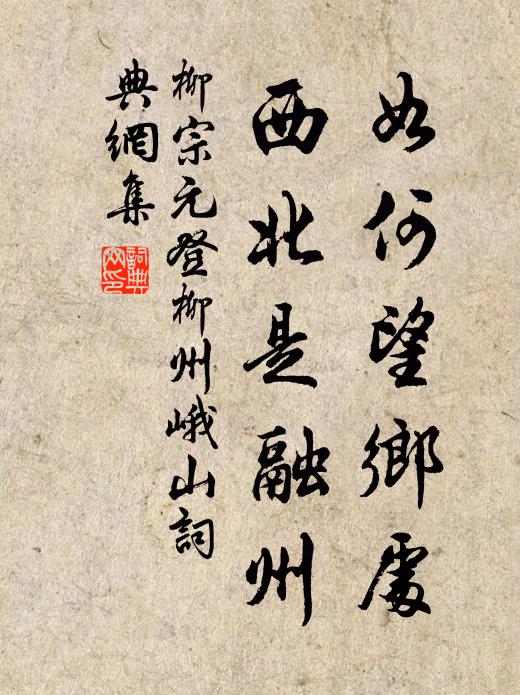 如何望鄉處
西北是融州
柳宗元登柳州峨山詞
典網集
詞典